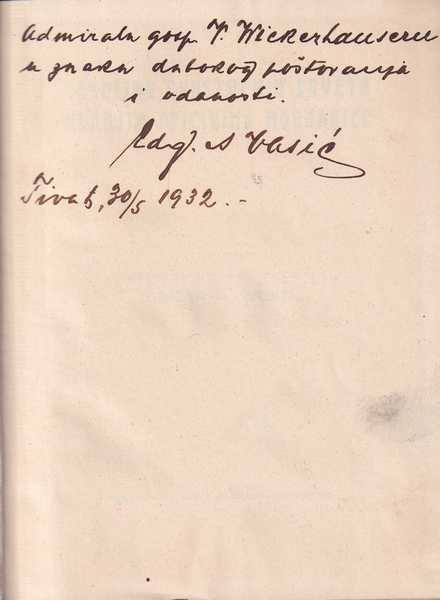 Admiralu gosp. V. Wickerhauseru
u znaku dubokog poštovanja
i odanosti.
A Vasić
Tivat, 30/5 1932.-